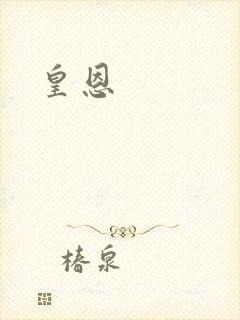 皇恩
椿泉